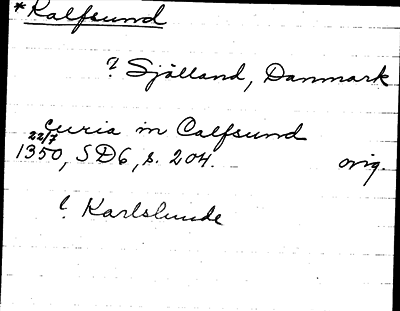 *Kalfsund
? Sjælland, Danmark
curia in Calfsund
22/7
1350, SD6, s. 204. orig.
? Karlslunde